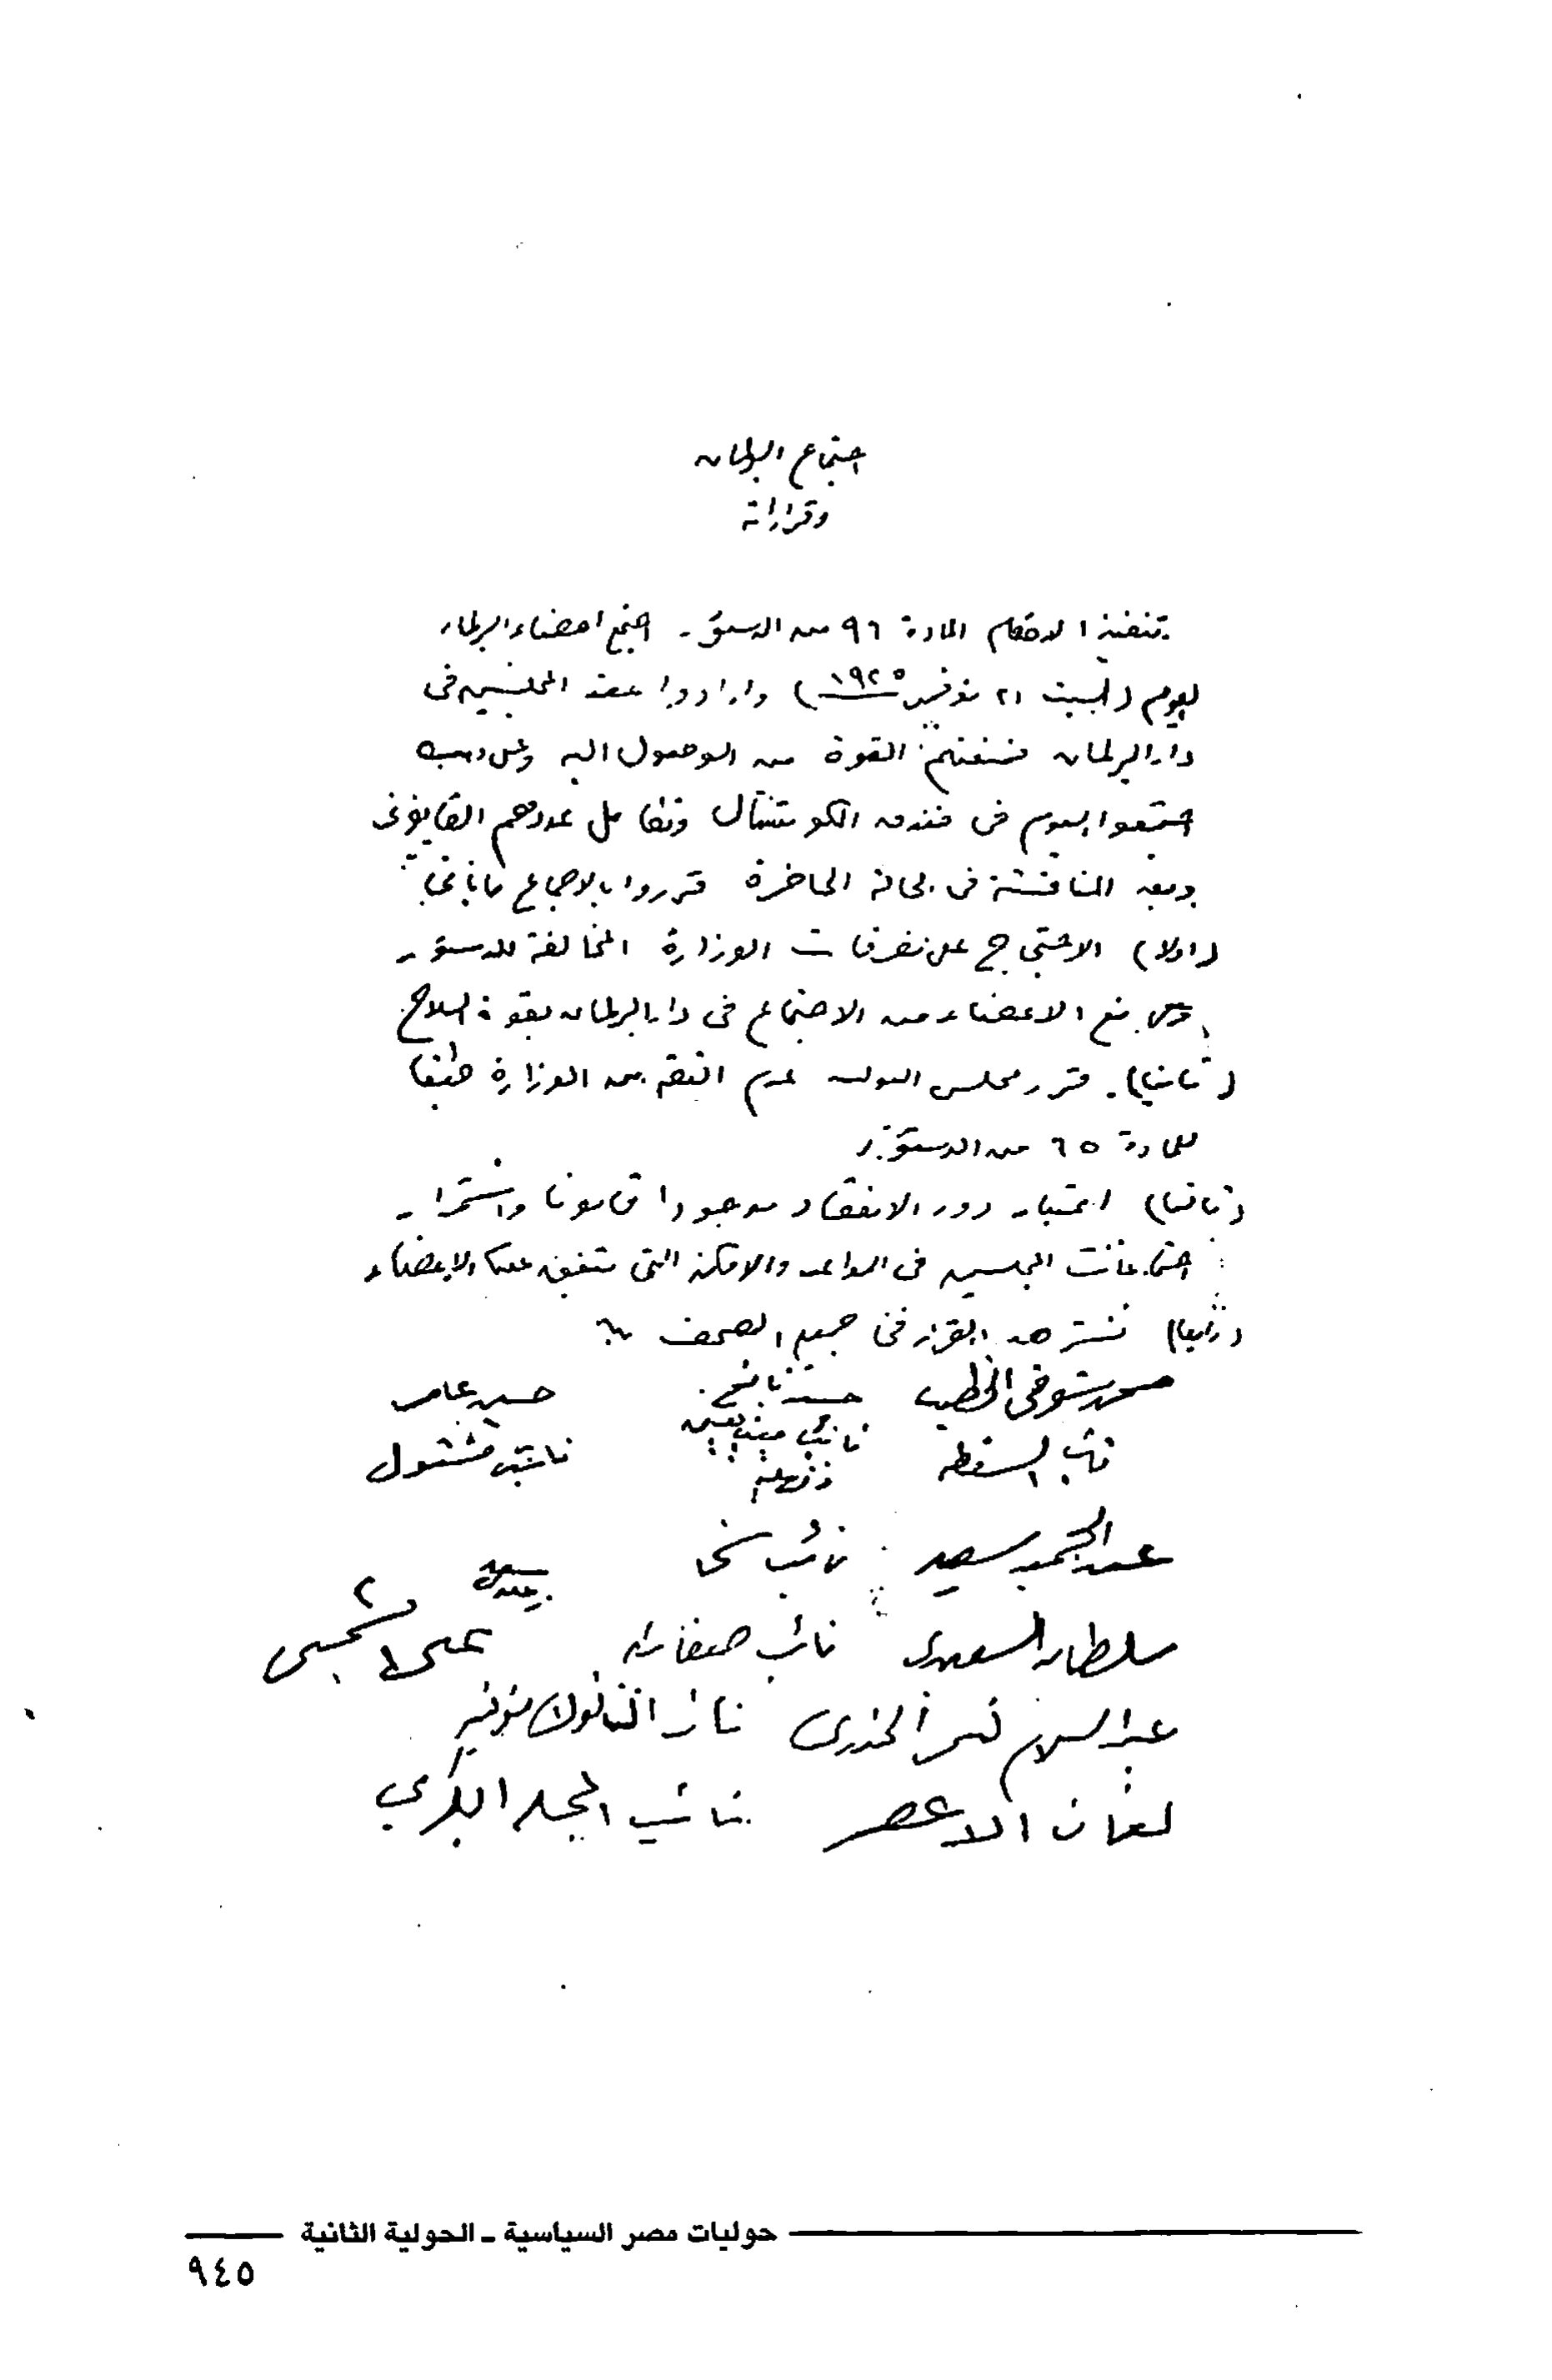 اجتماع البرلمان
وقراراته
تنفيذا لاحكام المادة ٩٦ من الدستور اجتمع اعضاء البرلمان
اليوم (السبت ٢١ نوفمبر ١٩٢٥) وارادوا عقد المجلسين فى
دار البرلمان فمنعتهم القوة من الوصول اليه
اجتمعوا اليوم فى فندق الكونتننتال وتكامل عددهم القانونى
وبعد المناقشة فى الحالة الحاضرة قرروا بالاجماع ما يأتى
(اولا) الاحتجاج على تصرفات الوزارة المخالفة للدستور
وعلى منع الاعضاء من الاجتماع فى دار البرلمان بقوة السلاح
(ثانيا) قرر مجلس النواب عدم الثقة بهذه الوزارة طبقا
للمادة ٦٥ من الدستور
(ثالثا) اعتبار دور الانعقاد موجودا قانونا واستمرار
اجتماعات المجلسين فى المواعيد والامكنة التى يتفق عليها الاعضاء
(رابعا) نشر هذا القرار فى جميع الصحف
محمد شوقى الخطيب حسن نافع حسين عامر
نائب السنطه نائب نائب مشتول
عبد الحميد سعيد نائب سخا
سلطان السعدى نائب على الشمسى
عبد السلام نائب
نائب المحلة الكبرى
حوليات مصر السياسية ـ الحولية الثانية
٩٤٥